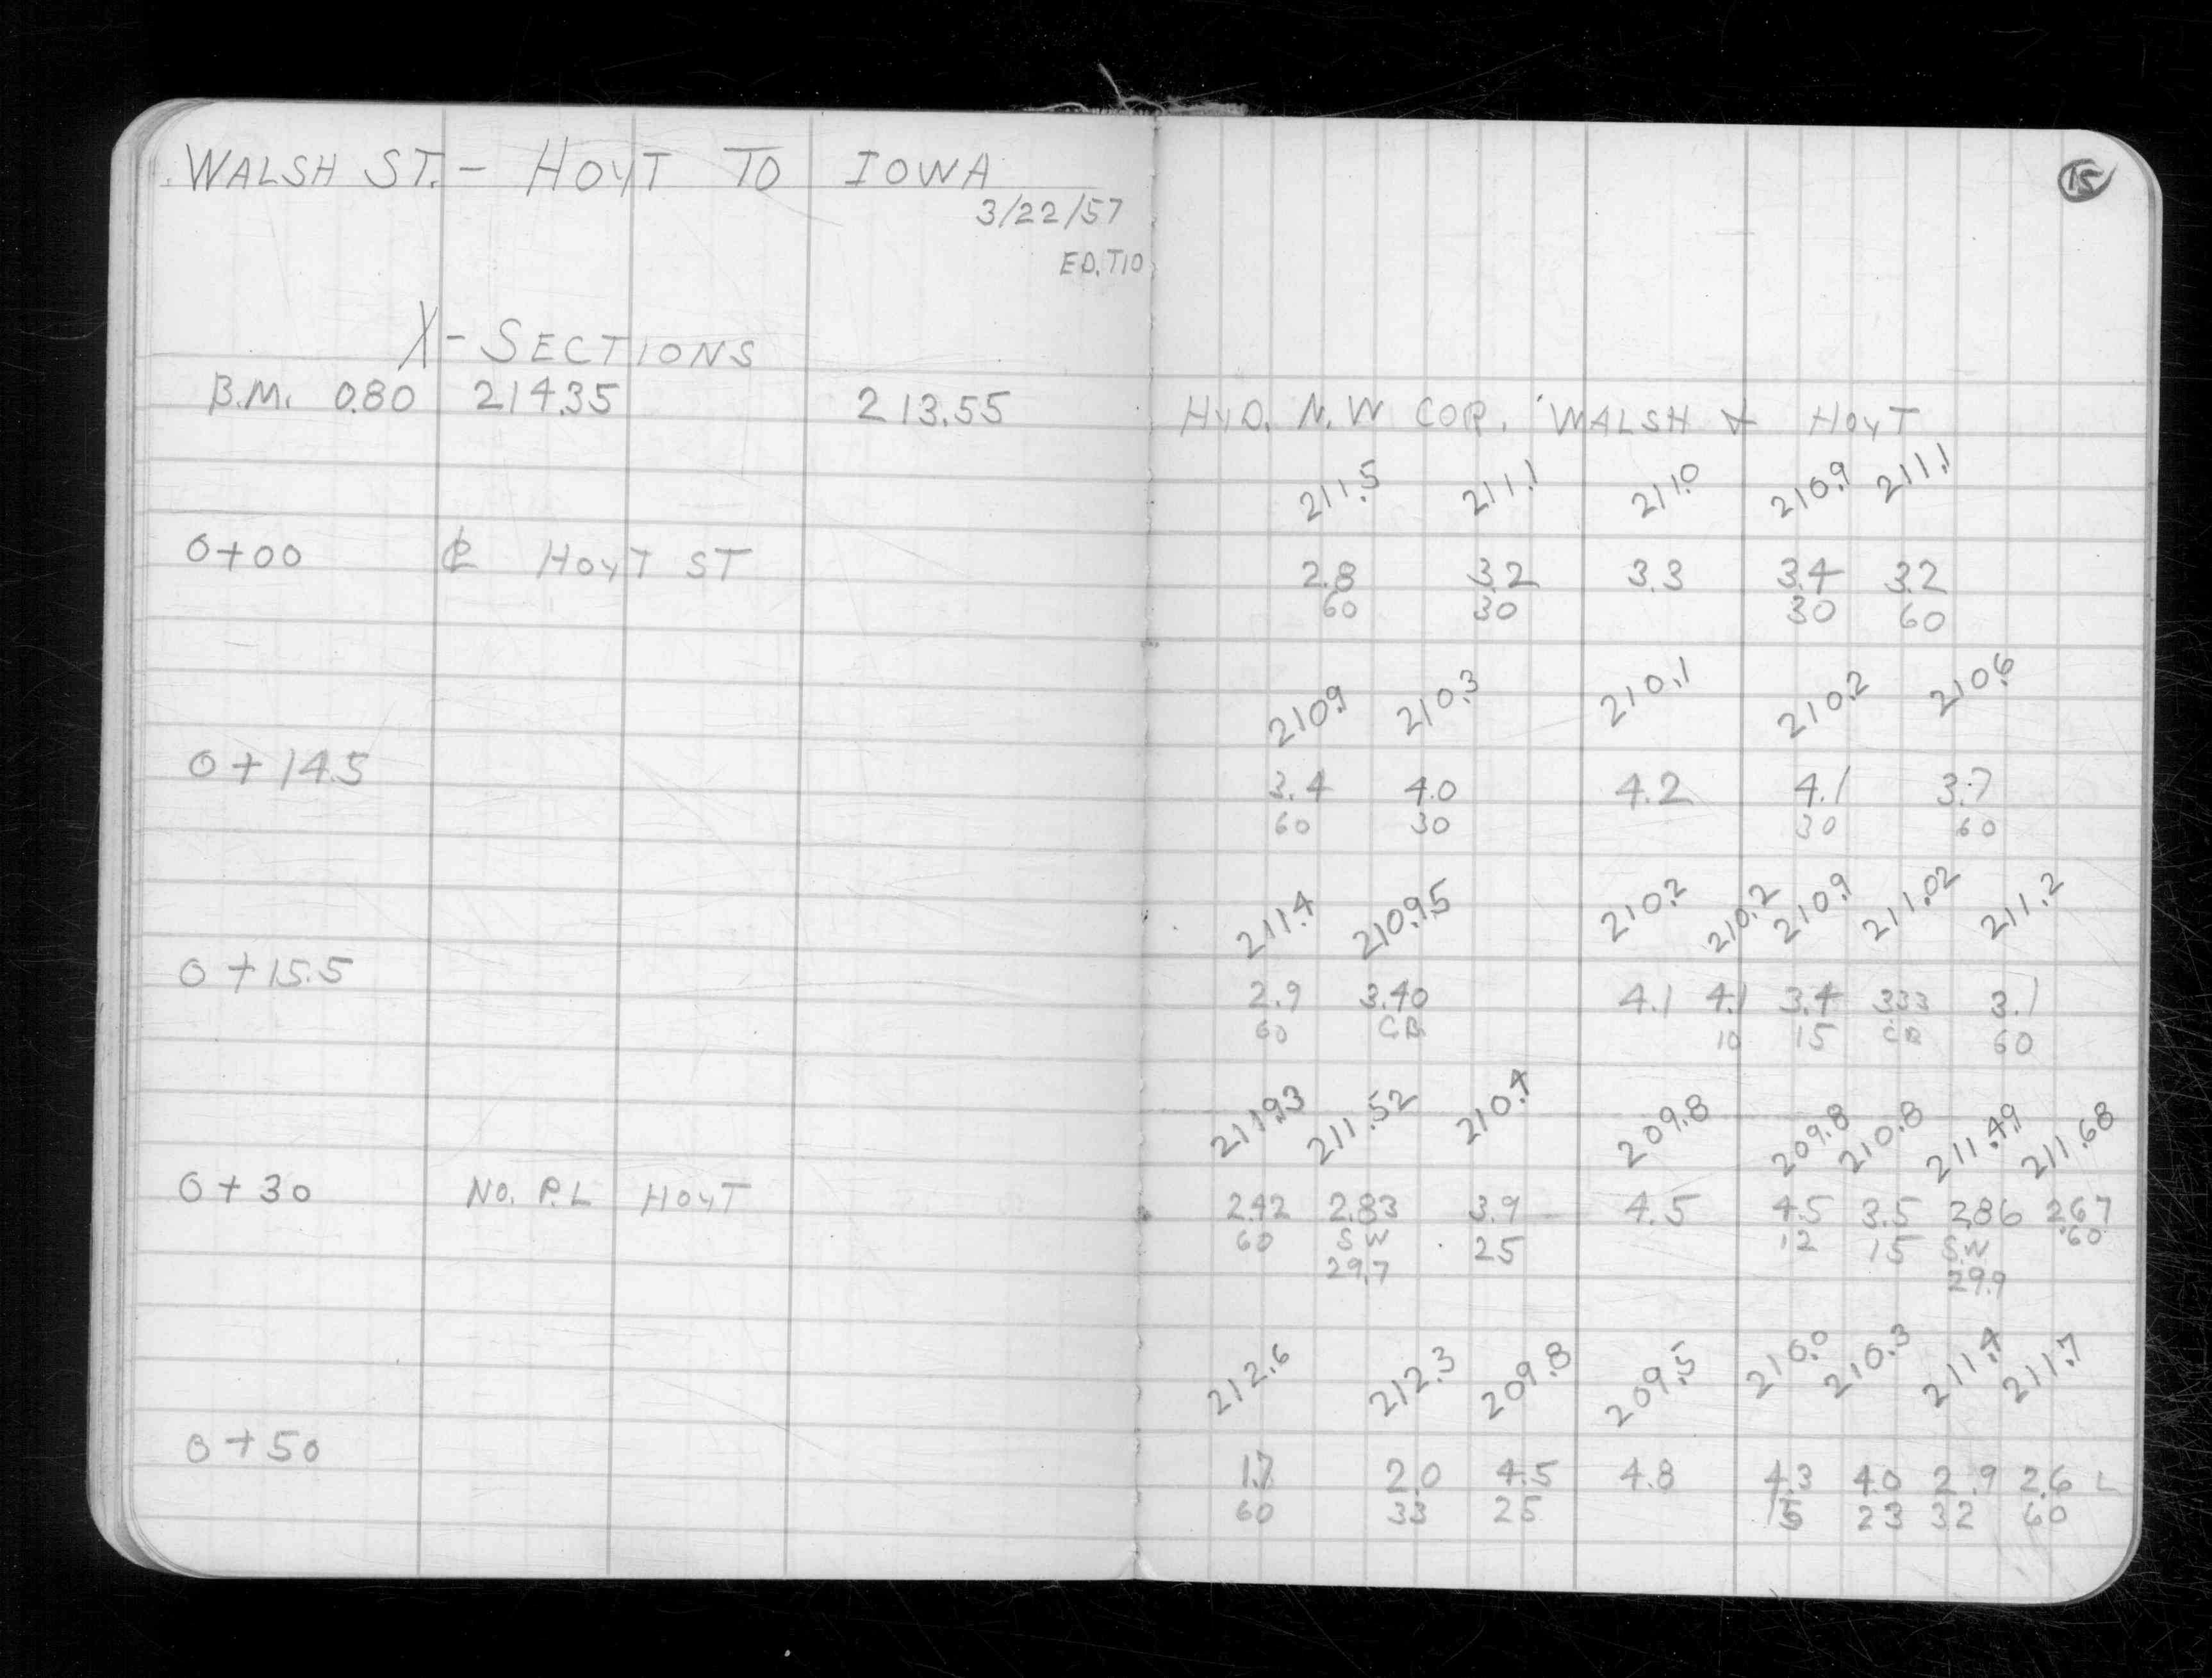 15
WALSH ST. - HOYT TO IOWA
3/22/57
ED, TIO
X-SECTIONS
B.M. 0.80 214.35 213.55 HYD. N.W COR. WALSH & HOYT
211.5 211.1 211.0 210.9 211.1
0+00 ℄ HOYT ST 2.8 3.2 3.3 3.4 3.2
60 30 30 60
210.9 210.3 210.1 210.2 210.6
0+14.5 3.4 4.0 4.2 4.1 3.7
60 30 30 60
211.4 210.95 210.2 210.2 210.9 211.02 211.2
0+15.5 2.9 3.40 4.1 4.1 3.4 3.33 3.1
60 CB 10 15 CB 60
211.93 211.52 210.4 209.8 209.8 210.8 211.49 211.68
0+30 NO. P.L HOYT 2.42 2.83 3.9 4.5 4.5 3.5 2.86 2.67
60 SW 25 12 15 SW 60
29.7 29.9
212.6 212.3 209.8 209.5 210.0 210.3 211.4 211.7
0+50 1.7 2.0 4.5 4.8 4.3 4.0 2.9 2.6 L
60 33 25 15 23 32 60